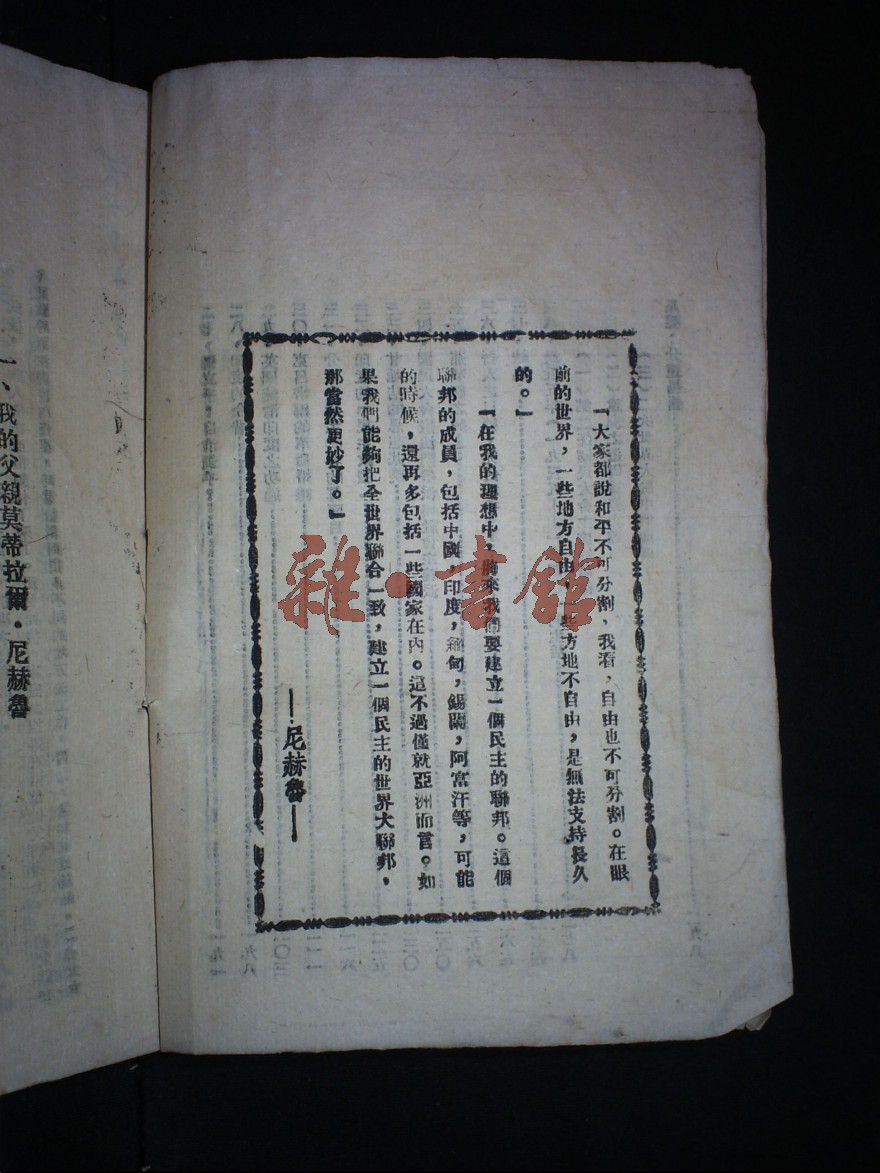 「大家都說和平不可分割，我看，自由也不可分割。在眼
前的世界，一些地方自由，一些方地不自由，是無法支持長久
的。」
「在我的理想中，將來我們要建立一個民主的聯邦。這個
聯邦的成員，包括中國，印度，緬甸，錫蘭，阿富汗等，可能
的時候，還再多包括一些國家在內。這不過僅就亞洲而言。如
果我們能夠把全世界聯合一致，建立一個民主的世界大聯邦，
那當然更妙了。」
——尼赫魯——
一、我的父親莫蒂拉爾·尼赫魯
雜·書館